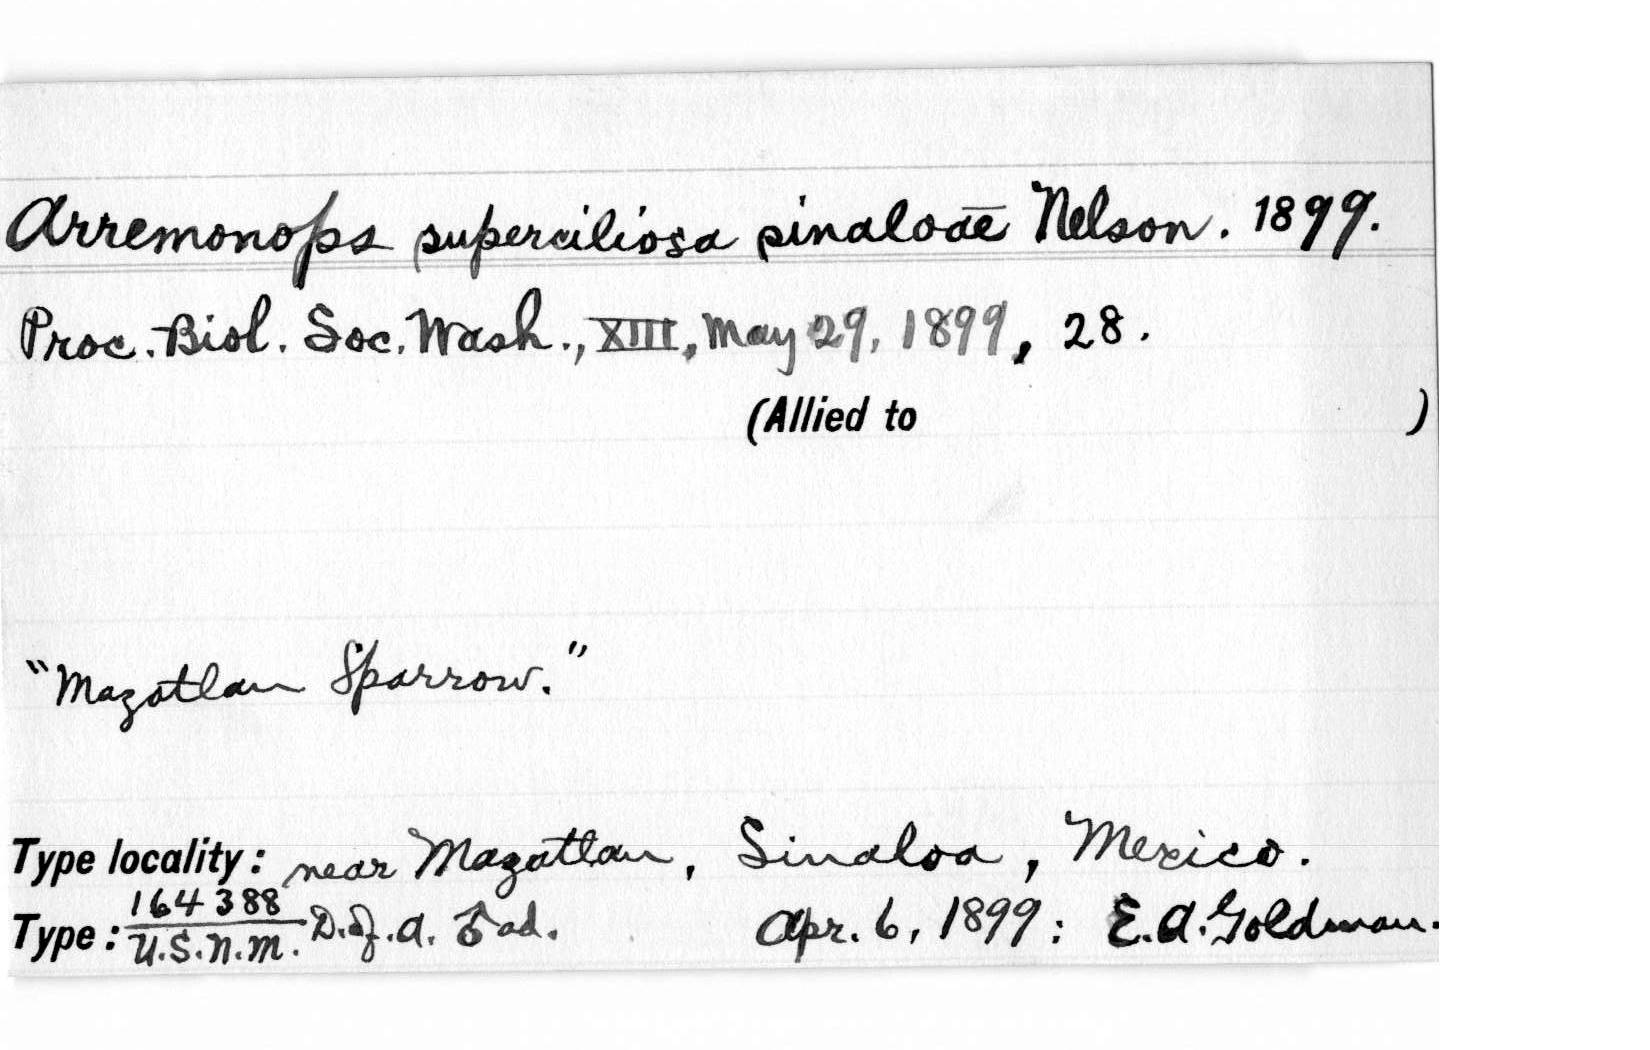 Arremonops superciliosa sinaloae Nelson. 1899.
Proc. Biol. Soc. Wash., XIII, May 29, 1899, 28.
(Allied to )
"Mazatlan Sparrow."
Type locality: near Mazatlan, Sinaloa, Mexico.
164388
Type: U.S.N.M. D. of A. ♂ ad. Apr. 6, 1899: E.A. Goldman.